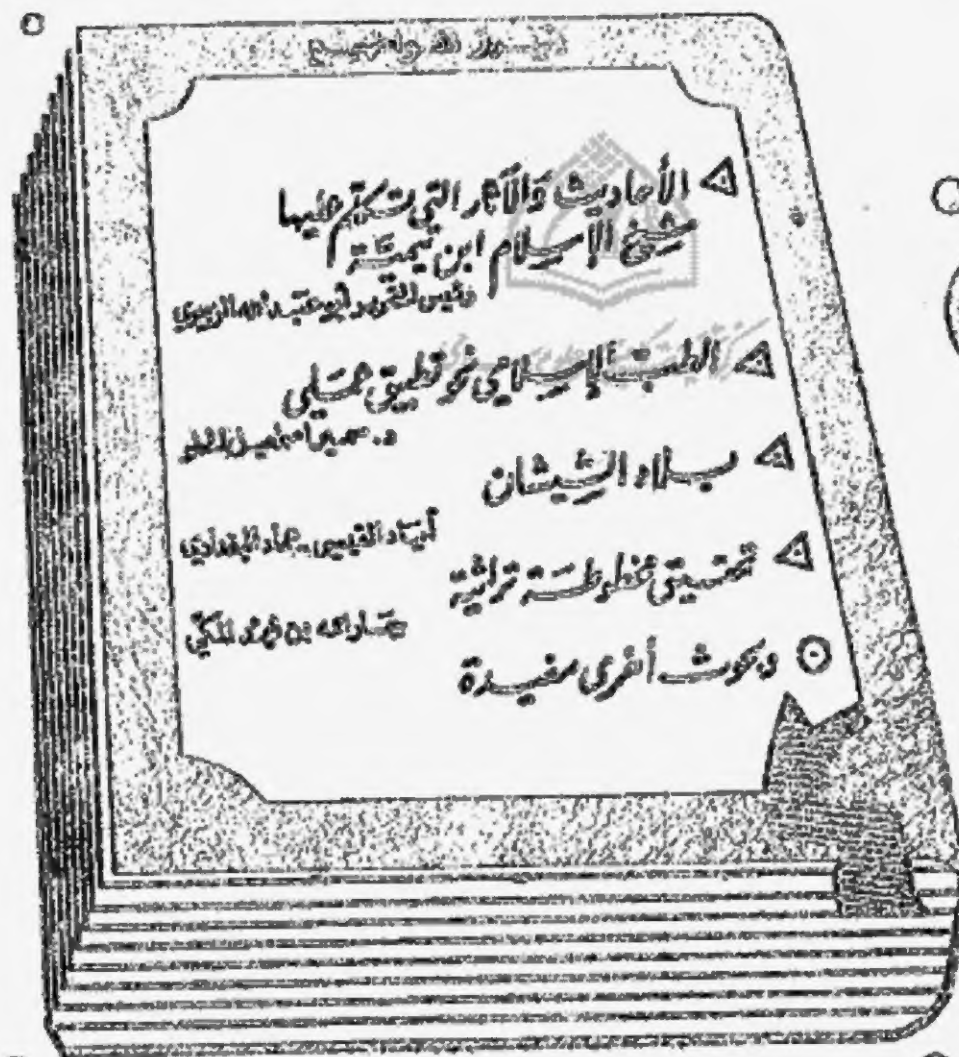 الأحاديث والآثار التي تكلم عليها
شيخ الإسلام ابن تيمية
رئيس التحرير أبو عبد الله الزبيري
الطب الإسلامي نحو تطبيق عملي
د. سمير
بلاد الشيشان
إياد القيسي - عماد البغدادي
تحقيق مخطوطة تراثية
جار الله بن فهد المكي
وبحوث أخرى مفيدة